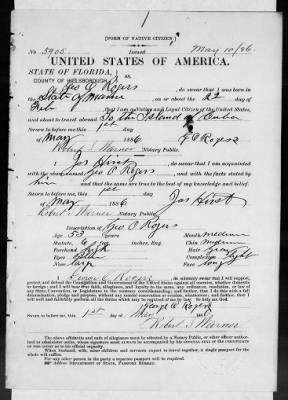 [FORM OF NATIVE CITIZEN.]
No. 5905. Issued May 10/86.
UNITED STATES OF AMERICA.
STATE OF FLORIDA,
COUNTY OF HILLSBOROUGH ss.
I, Geo O Rogers, do swear that I was born in
State of on or about the 22 day of
that I am a Native and Loyal Citizen of the United States,
and about to travel abroad To the Island of Cuba
Sworn to before me, this 1st day
of May 1886 G O Rogers
Robert S. Warner Notary Public.
I, Jas Hirst, do swear that I am acquainted
with the above named Geo O Rogers, and with the facts stated by
him and that the same are true to the best of my knowledge and belief.
Sworn to before me, this 1st day
of May 1886 Jas Hirst
Robert S. Warner Notary Public.
Description of Geo O Rogers
Age: 53 years Mouth: medium
Stature: 6 feet inches, Eng. Chin:
Forehead: Hair: Gray
Eyes: Complexion:
Nose: large Face: long
I, George O Rogers do solemnly swear that I will support,
protect and defend the Constitution and Government of the United States against all enemies, whether domestic
or foreign; and that I will bear true faith, allegiance and loyalty to the same, any ordinance, resolution or law of
any State, Convention or Legislature to the contrary notwithstanding; and further, that I do this with a full
determination, pledge and purpose, without any mental reservation or evasion whatsoever; and further, that I
will well and faithfully perform all the duties which may be required of me by law: So help me God.
George O Rogers
Sworn to before me, this 1st day
of May 1886
Robert S. Warner
The above affidavits and oath of allegiance must be attested by a Notary Public, or other officer author-
ized to administer oaths, whose signature must always be accompanied by his official seal or the certificate
of a court as to his official capacity.
When husband, wife, minor children and servants expect to travel together, a single passport for the
whole will suffice.
For any other person in the party a separate passport will be required.
Address DEPARTMENT OF STATE, PASSPORT BUREAU.